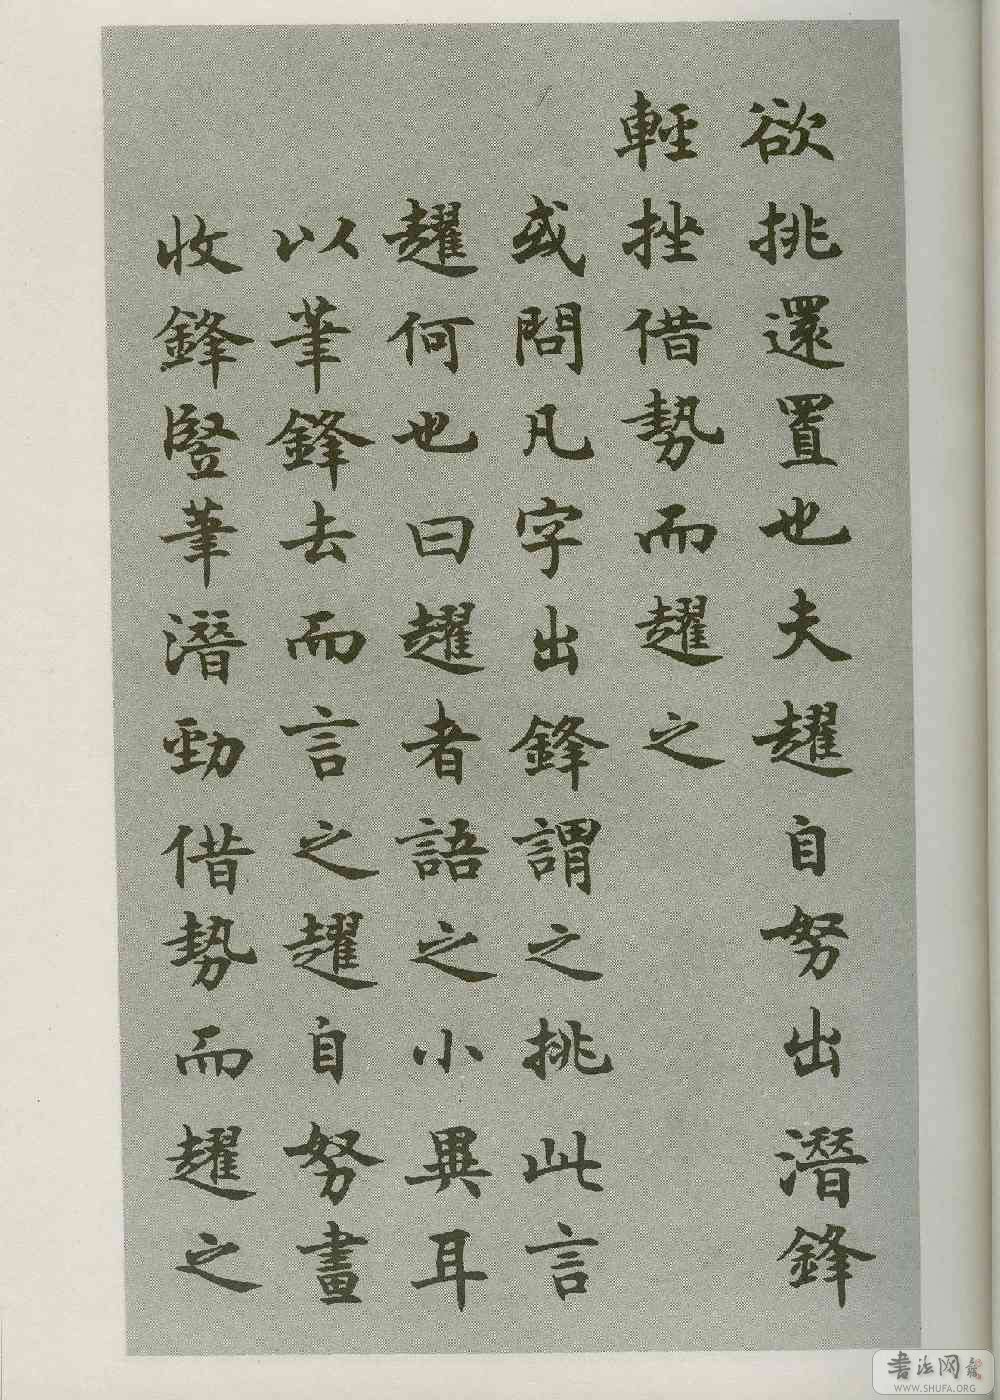 欲挑還置也夫趯自努出潛鋒
輕挫借勢而趯之
或問凡字出鋒謂之挑此言
趯何也曰趯者語之小異耳
以筆鋒去而言之趯自努畫
收鋒豎筆潛勁借勢而趯之
書法网
WWW.SHUFA.ORG